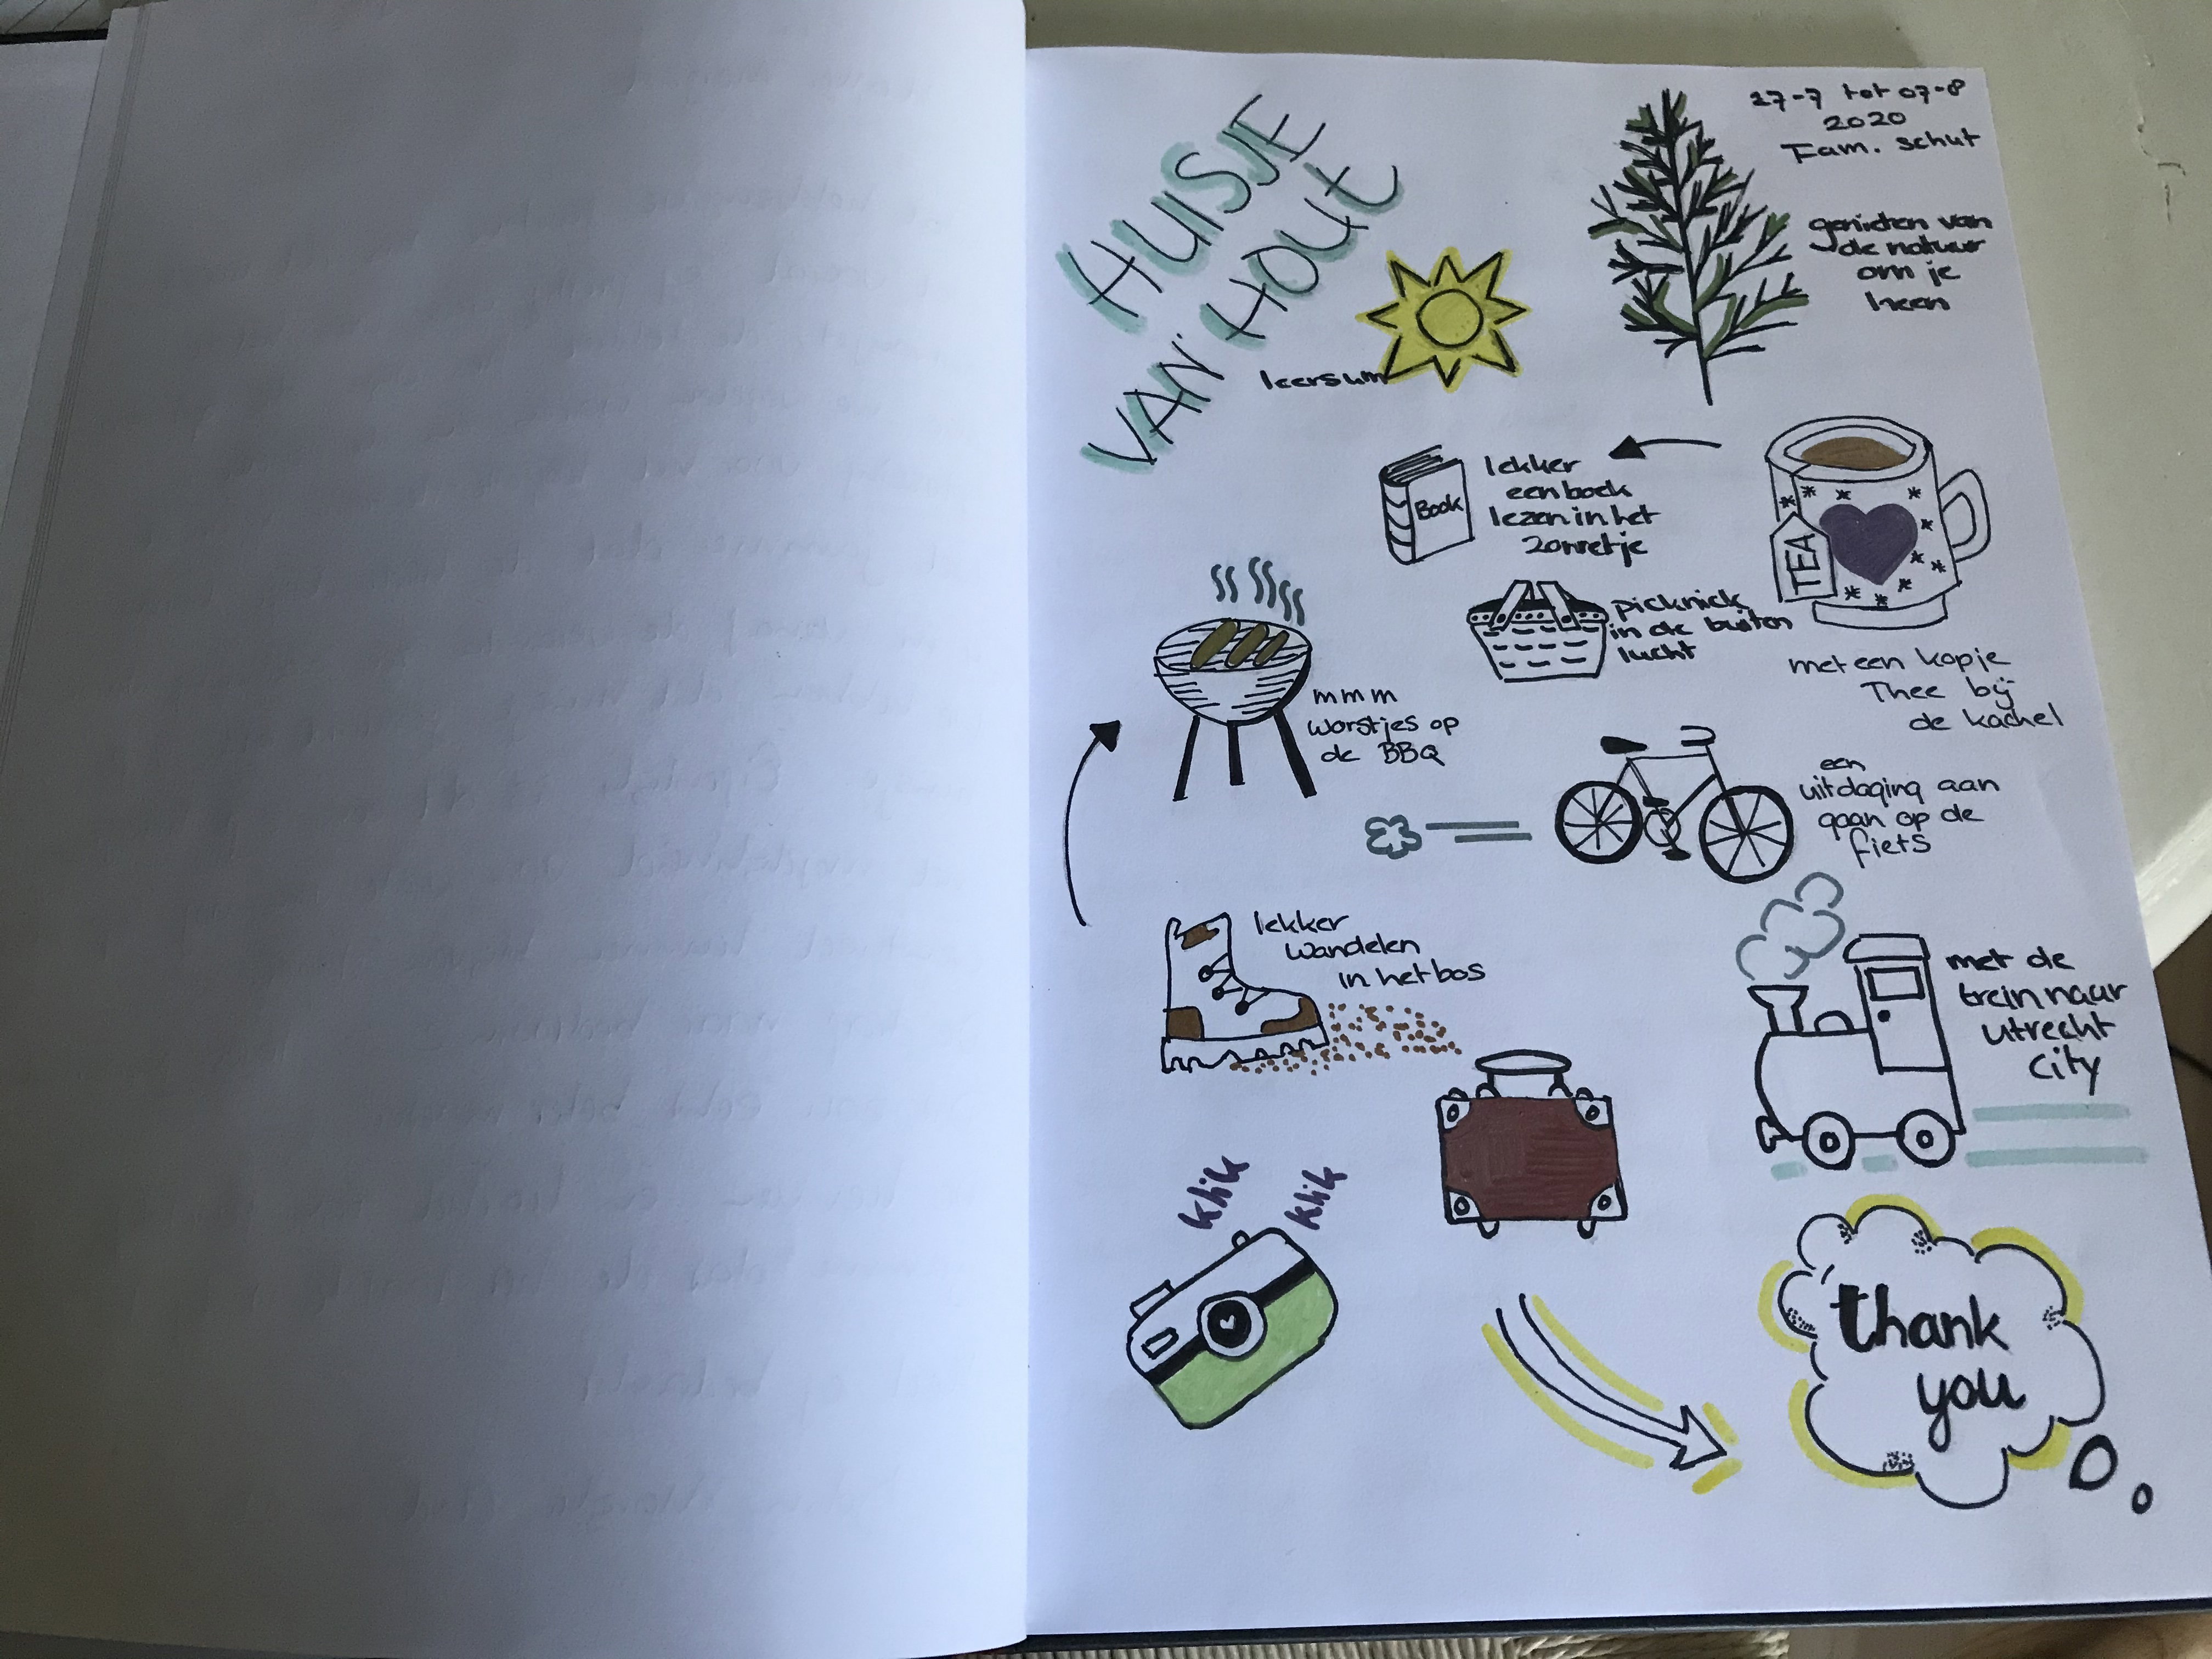 HUISJE
VAN HOUT
leersum
27-7 tot 07-8
2020
Fam. schut
genieten van
de natuur
om je
heen
Book
lekker
een boek
lezen in het
zonnetje
TEA
met een kopje
Thee bij
de kachel
picknick
in de buiten
lucht
mmm
worstjes op
de BBQ
een
uitdaging aan
gaan op de
fiets
lekker
wandelen
in het bos
met de
trein naar
utrecht
City
klik
klik
thank
you